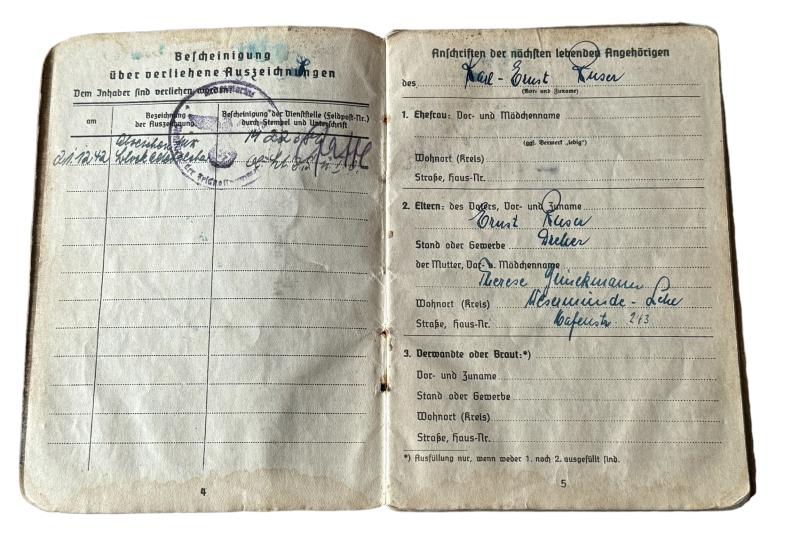 Bescheinigung
über verliehene Auszeichnungen
Dem Inhaber sind verliehen worden:
am
Bezeichnung der Auszeichnung
Bescheinigung der Dienststelle (Feldpost-Nr.) durch Stempel und Unterschrift
21.12.42
4
Anschriften der nächsten lebenden Angehörigen
des Karl-Ernst
(Vor- und Zuname)
1. Ehefrau: Vor- und Mädchenname
(ggf. Vermerk „ledig")
Wohnort (Kreis)
Straße, Haus-Nr.
2. Eltern: des Vaters, Vor- und Zuname
Ernst
Stand oder Gewerbe Dreher
der Mutter, Vor- u. Mädchenname
Therese
Wohnort (Kreis) Wesermünde-Lehe
Straße, Haus-Nr. Hafenstr. 213
3. Verwandte oder Braut:*)
Vor- und Zuname
Stand oder Gewerbe
Wohnort (Kreis)
Straße, Haus-Nr.
*) Ausfüllung nur, wenn weder 1. noch 2. ausgefüllt sind.
5